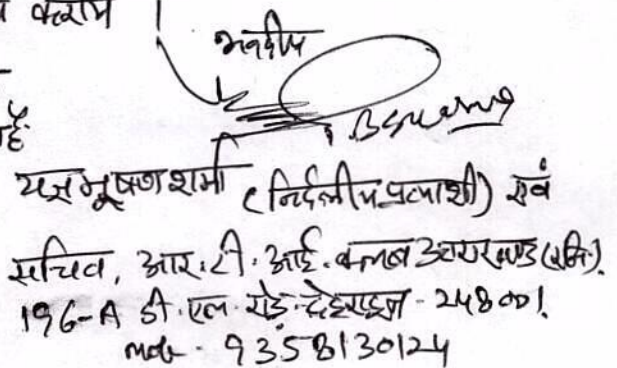 कराम
भवदीय
है
यज्ञभूषण शर्मा (निर्दलीय प्रत्याशी) एवं
सचिव, आर.टी.आई. क्लब उत्तराखण्ड (रजि.)
196-A डी.एल. रोड देहरादून - 248001.
mob - 9358130124